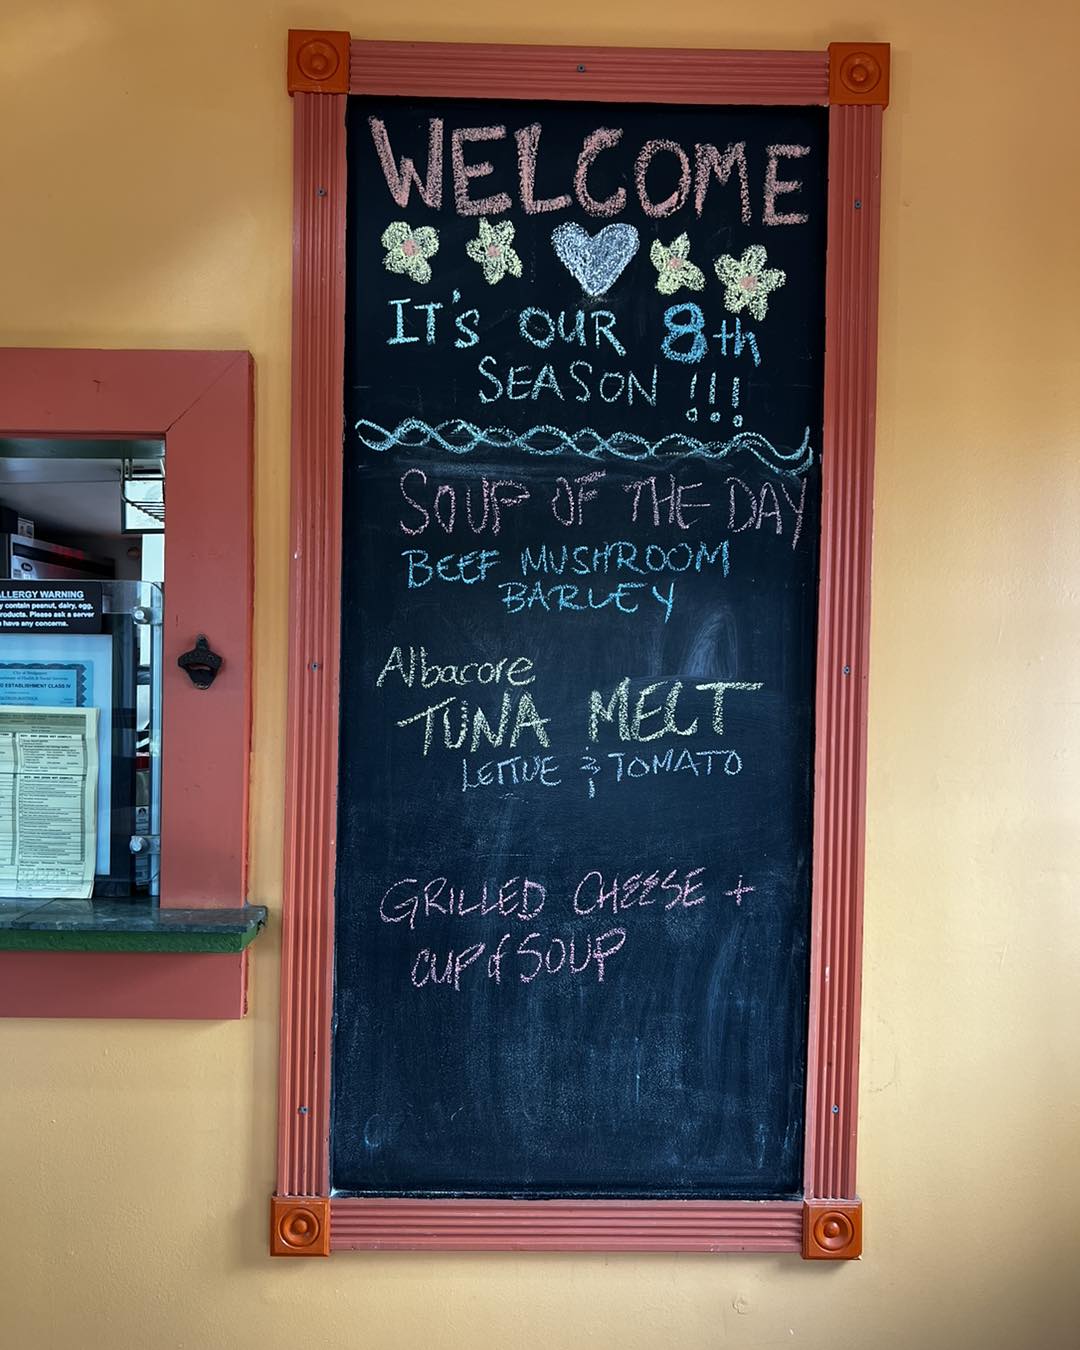 WELCOME
IT'S OUR 8th
SEASON !!!
SOUP OF THE DAY
BEEF MUSHROOM
BARLEY
Albacore
TUNA MELT
LETTUE & TOMATO
GRILLED CHEESE +
CUP of SOUP
ALLERGY WARNING
contain peanut, dairy, egg,
roducts. Please ask a server
have any concerns.
ESTABLISHMENT CLASS IV